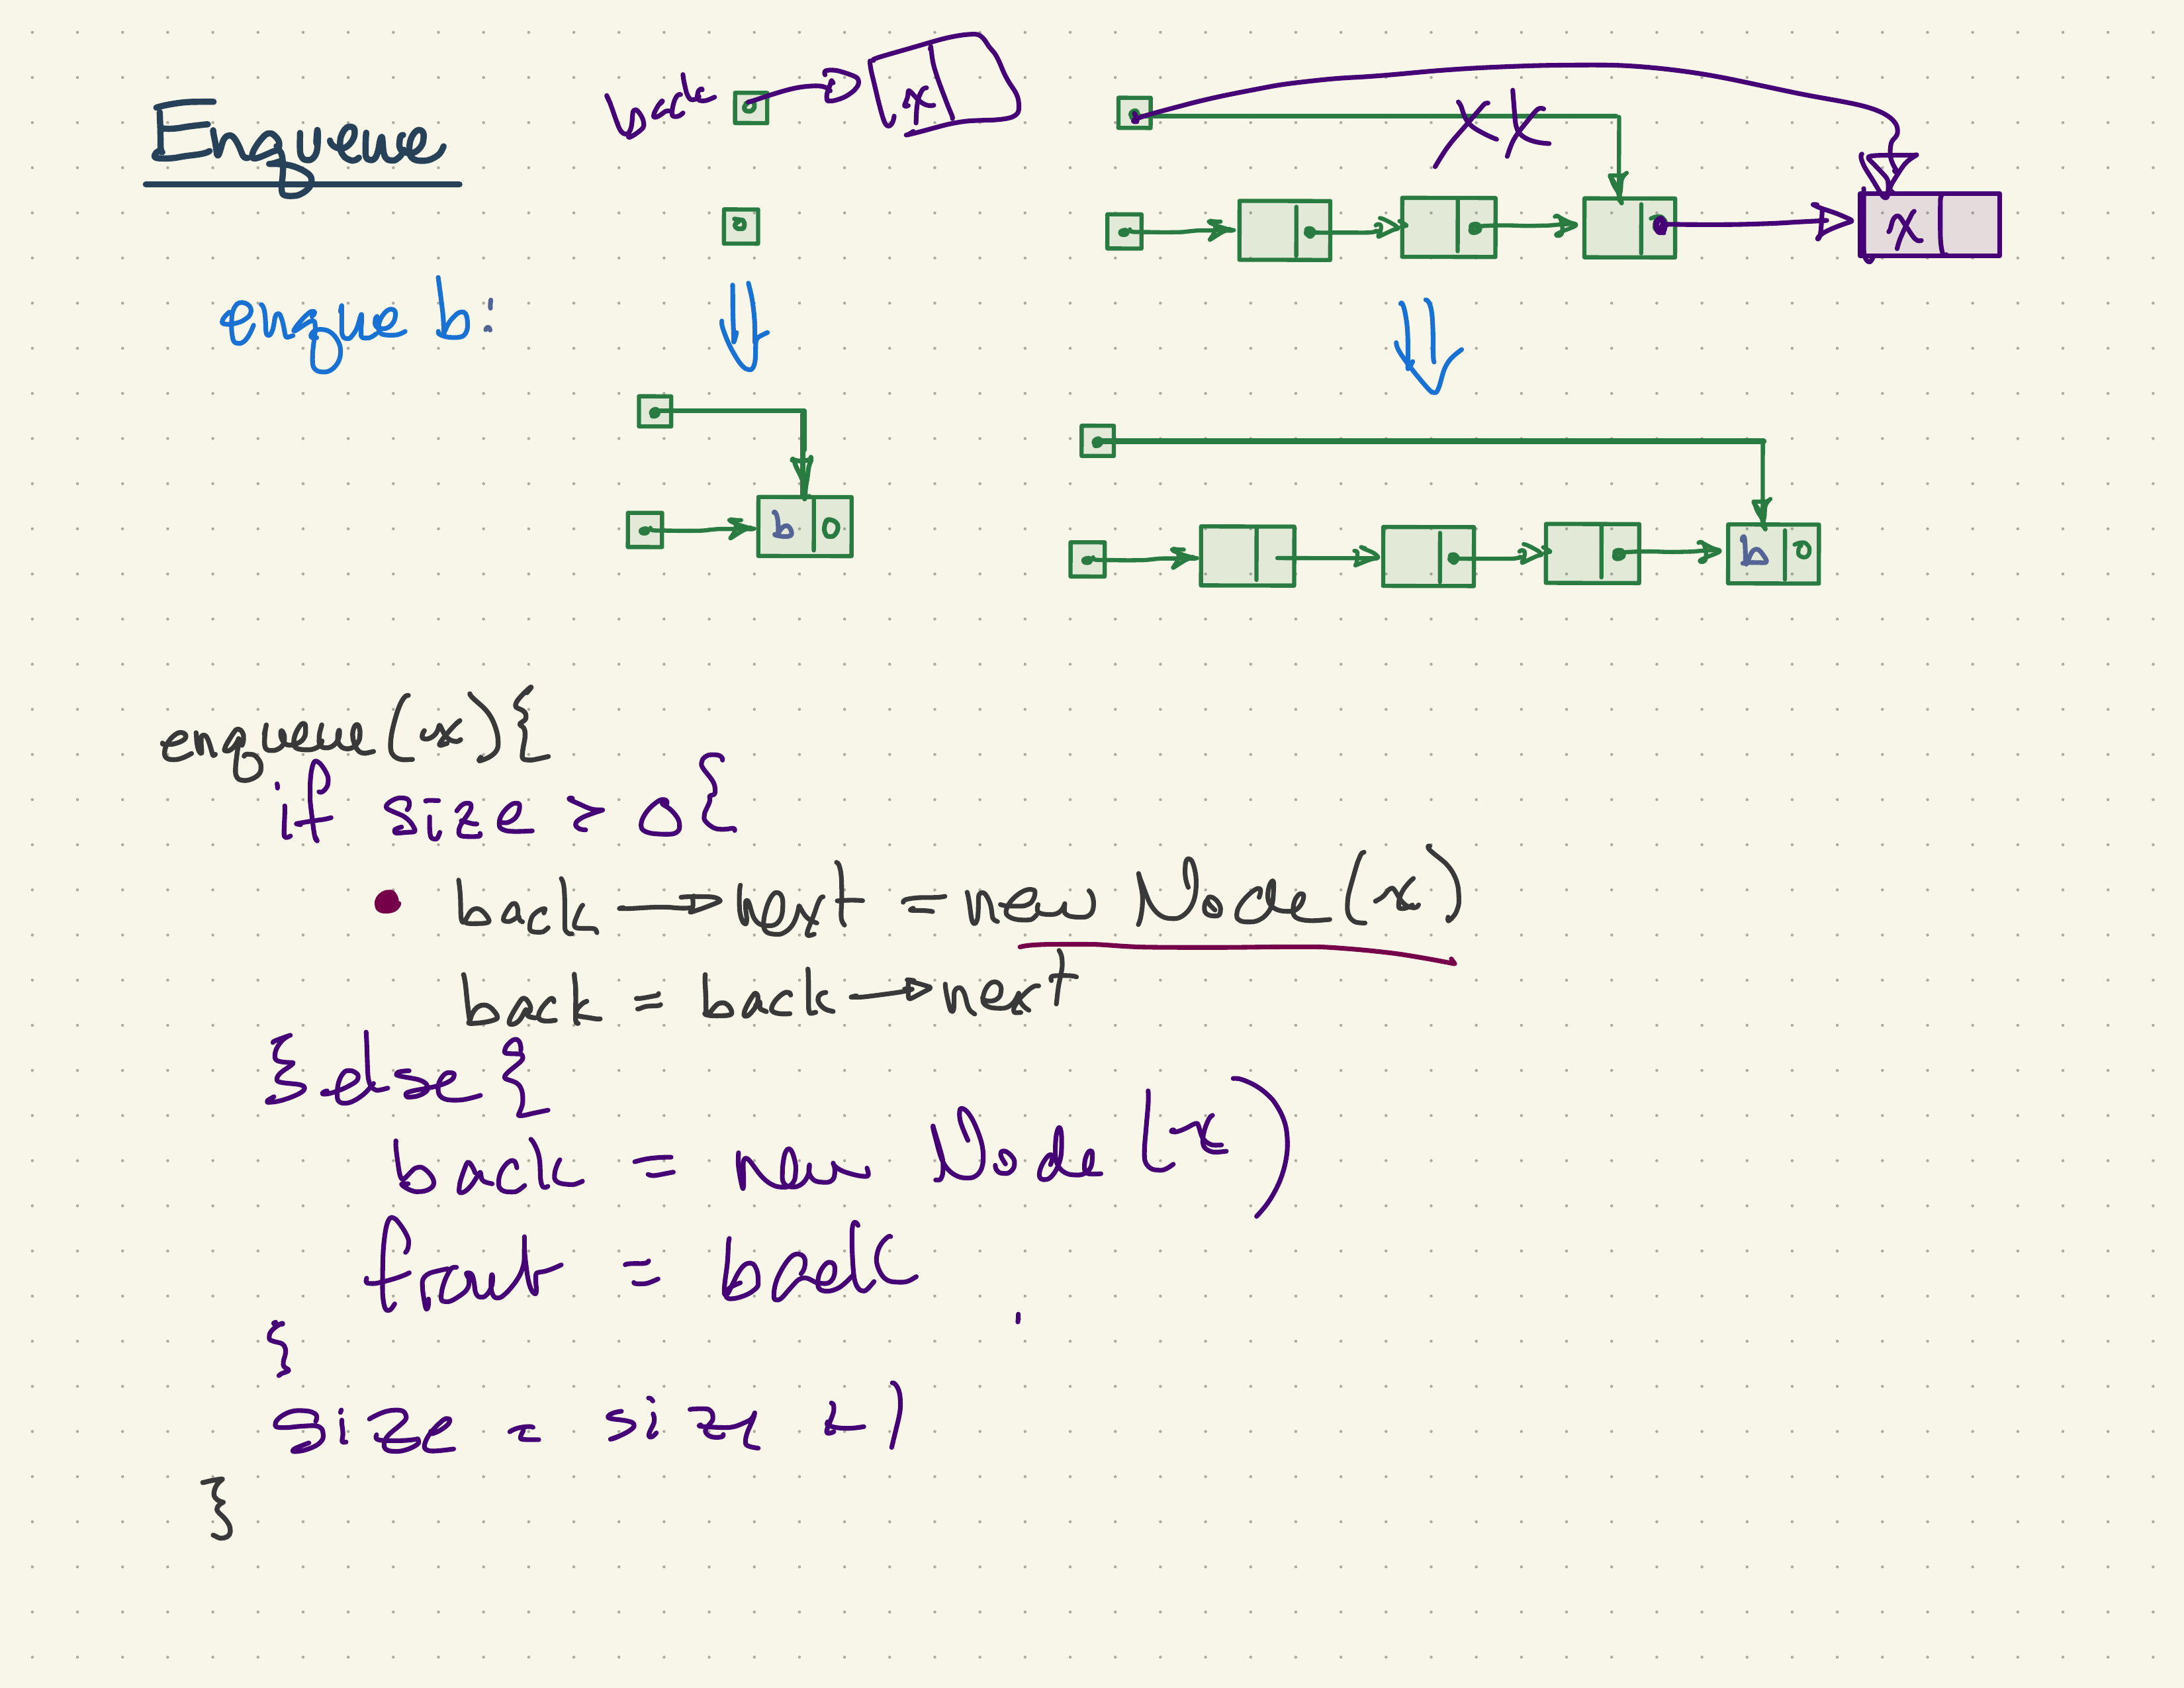 Enqueue
back
x
0
x
enque b:
b 0
b 0
enqueue(x){
if size > 0{
• back → next = new Node(x)
back = back → next
}else{
back = new Node(x)
front = back
}
size = size + 1
}